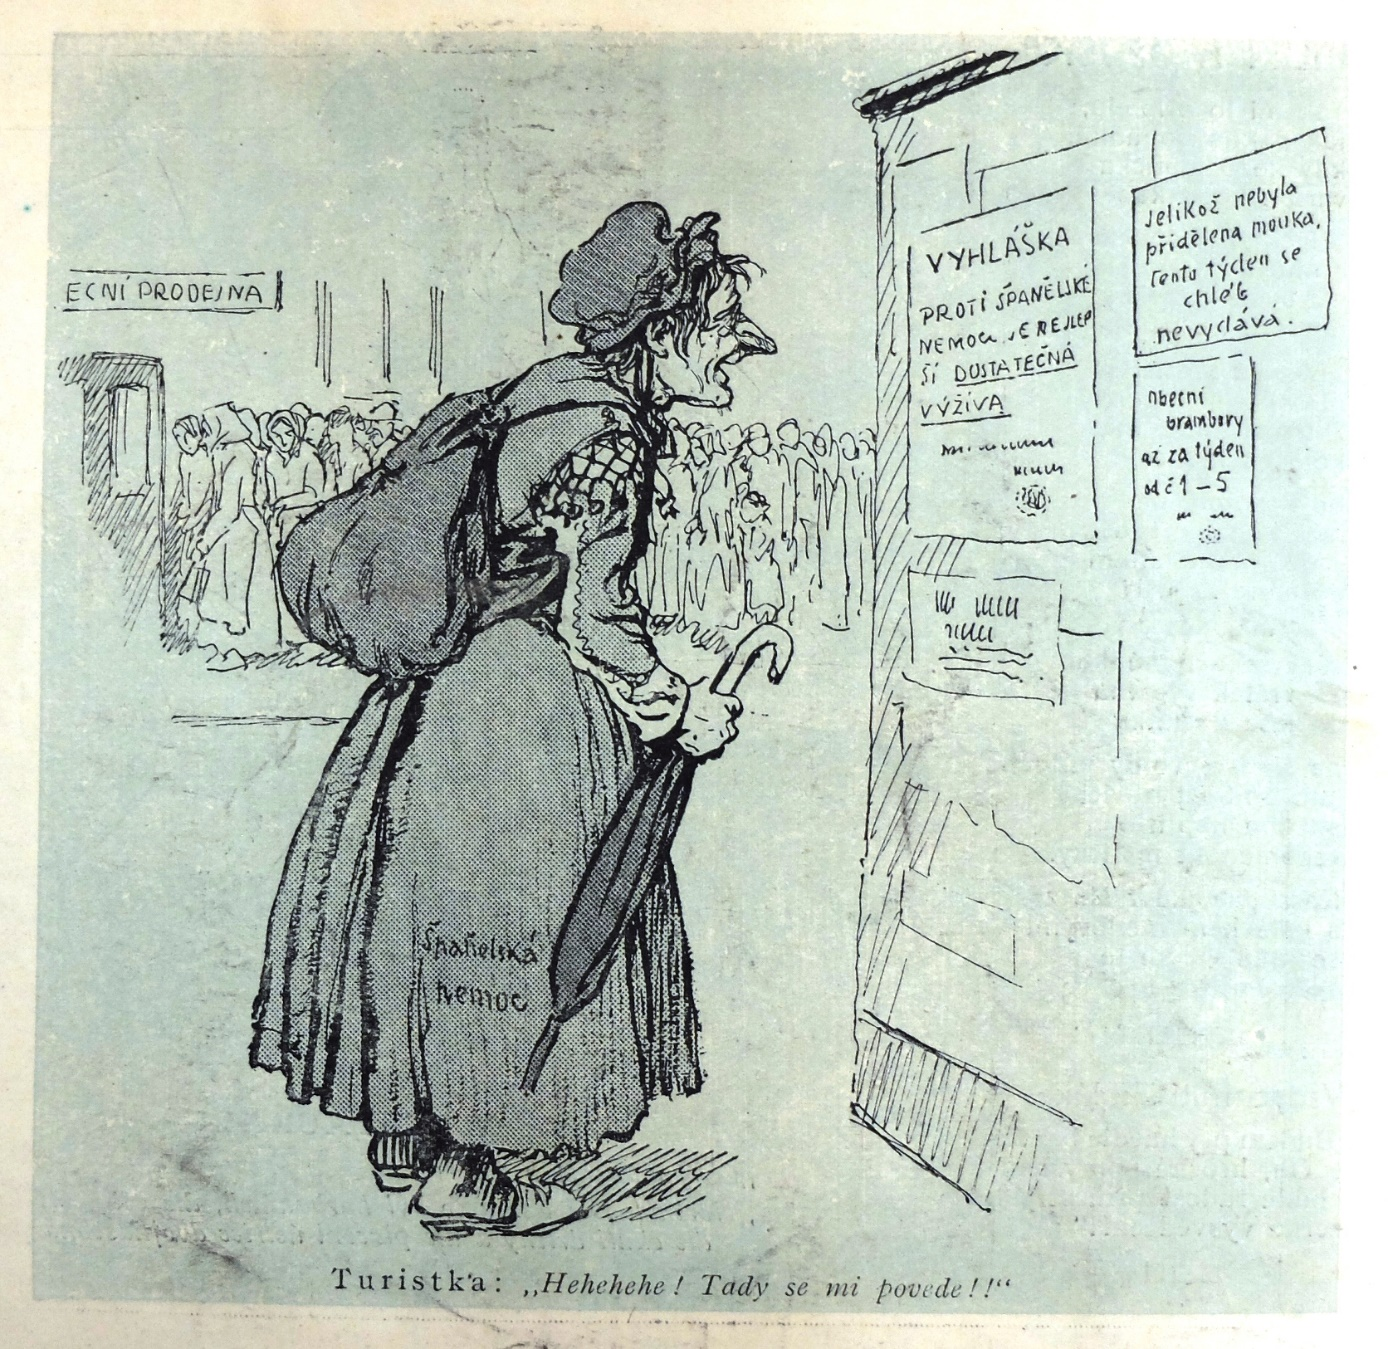 ECNÍ PRODEJNA
VYHLÁŠKA
PROTI ŠPANĚLSKÉ
NEMOCI JE NEJLEP
ŠÍ DOSTATEČNÁ
VÝŽIVA
Jelikož nebyla
přidělena mouka,
tento týden se
chléb
nevydává.
obecní
brambory
až za týden
od č 1 – 5
Španělská
nemoc
Turistka: „Hehehehe! Tady se mi povede!!“